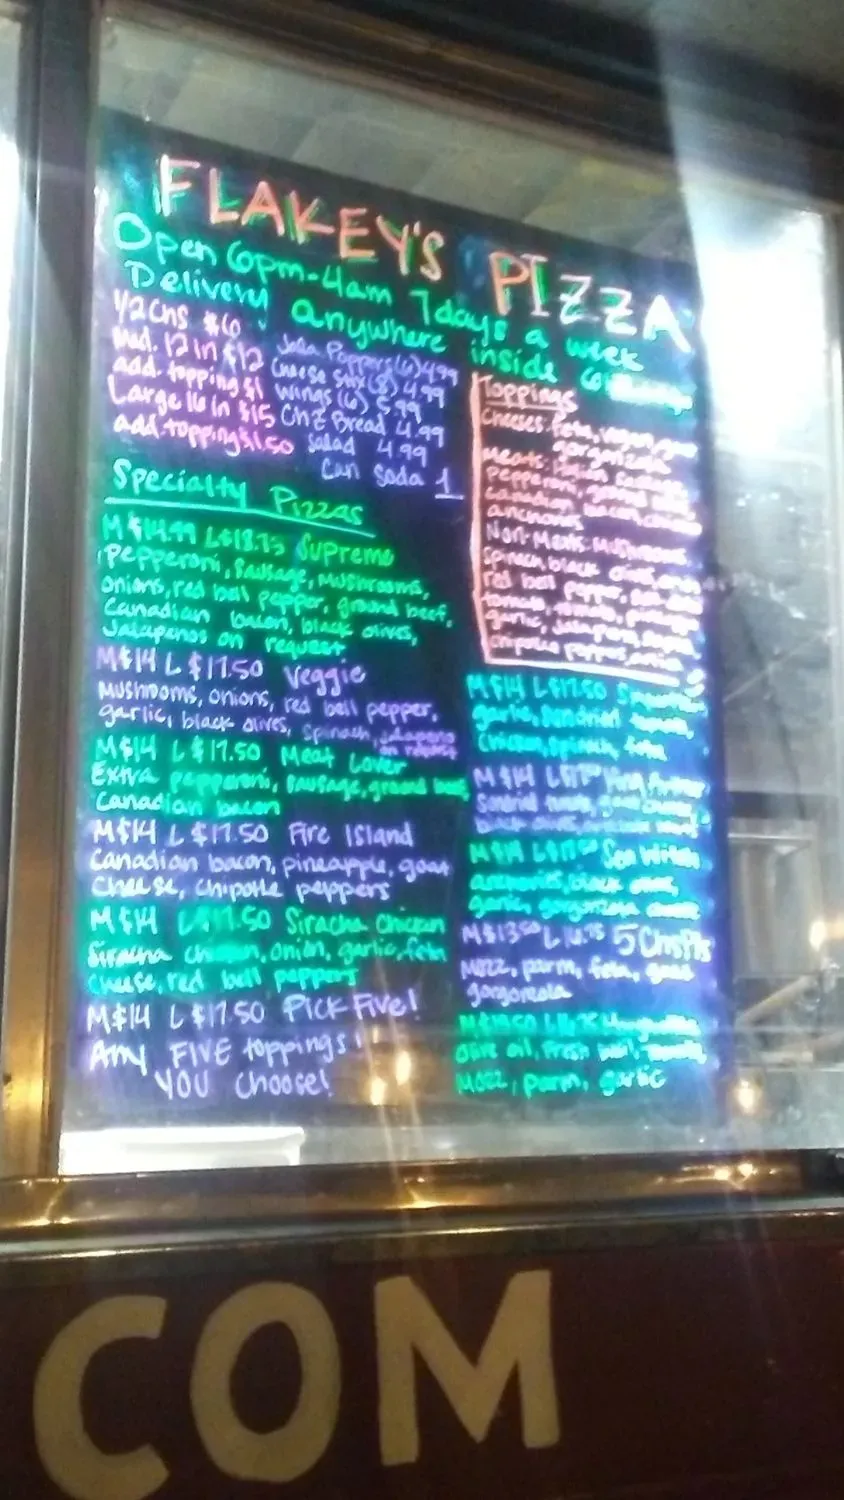 FLAKEY'S PIZZA
Open 6pm-4am 7days a week
Delivery anywhere inside
1/2 Chs $6
Med. 12 in $12
add. topping $1
Large 16 in $15
add. topping $1.50
Jala Poppers (6) 4.99
Cheese Stix (8) 4.99
Wings (6) 5.99
ChZ Bread 4.99
Salad 4.99
Can Soda 1
Toppings
Cheeses: feta, vegan, goat
gorgonzola
Meats:
pepperoni, ground
Canadian bacon,
Non-Meats: Mushrooms,
spinach, black olives,
red bell pepper,
garlic, Jalapeno,
chipotle pepper,
Specialty Pizzas
M $14.99 L $18.75 Supreme
Pepperoni, Sausage, Mushrooms,
onions, red bell pepper, ground beef,
Canadian bacon, black olives,
Jalapenos on request
M $14 L $17.50 Veggie
Mushrooms, onions, red bell pepper,
garlic, black olives, spinach, jalapeno
on request
M $14 L $17.50 Meat Lover
Extra pepperoni, sausage, ground beef
Canadian bacon
M $14 L $17.50 Fire Island
Canadian bacon, pineapple, goat
Cheese, Chipotle peppers
M $14 L $17.50 Siracha Chicken
Siracha chicken, onion, garlic, feta
cheese, red bell peppers
M $14 L $17.50 PICK FIVE!
Any FIVE toppings!
YOU Choose!
M $14 L $17.50
garlic, Sundried tomato,
Chicken, Spinach, feta
M $14 L $17.50
Sundried tomato, goat cheese
black olives,
M $14 L $17.50 Sea Witch
anchovies, black olives,
garlic, gorgonzola cheese
M $13.50 L 16.75 5 Chs Pie
Mozz, parm, feta, goat
gorgonzola
M $13.50 L 16.75 Margherita
Olive oil, Fresh basil, tomato,
Mozz, parm, garlic
COM